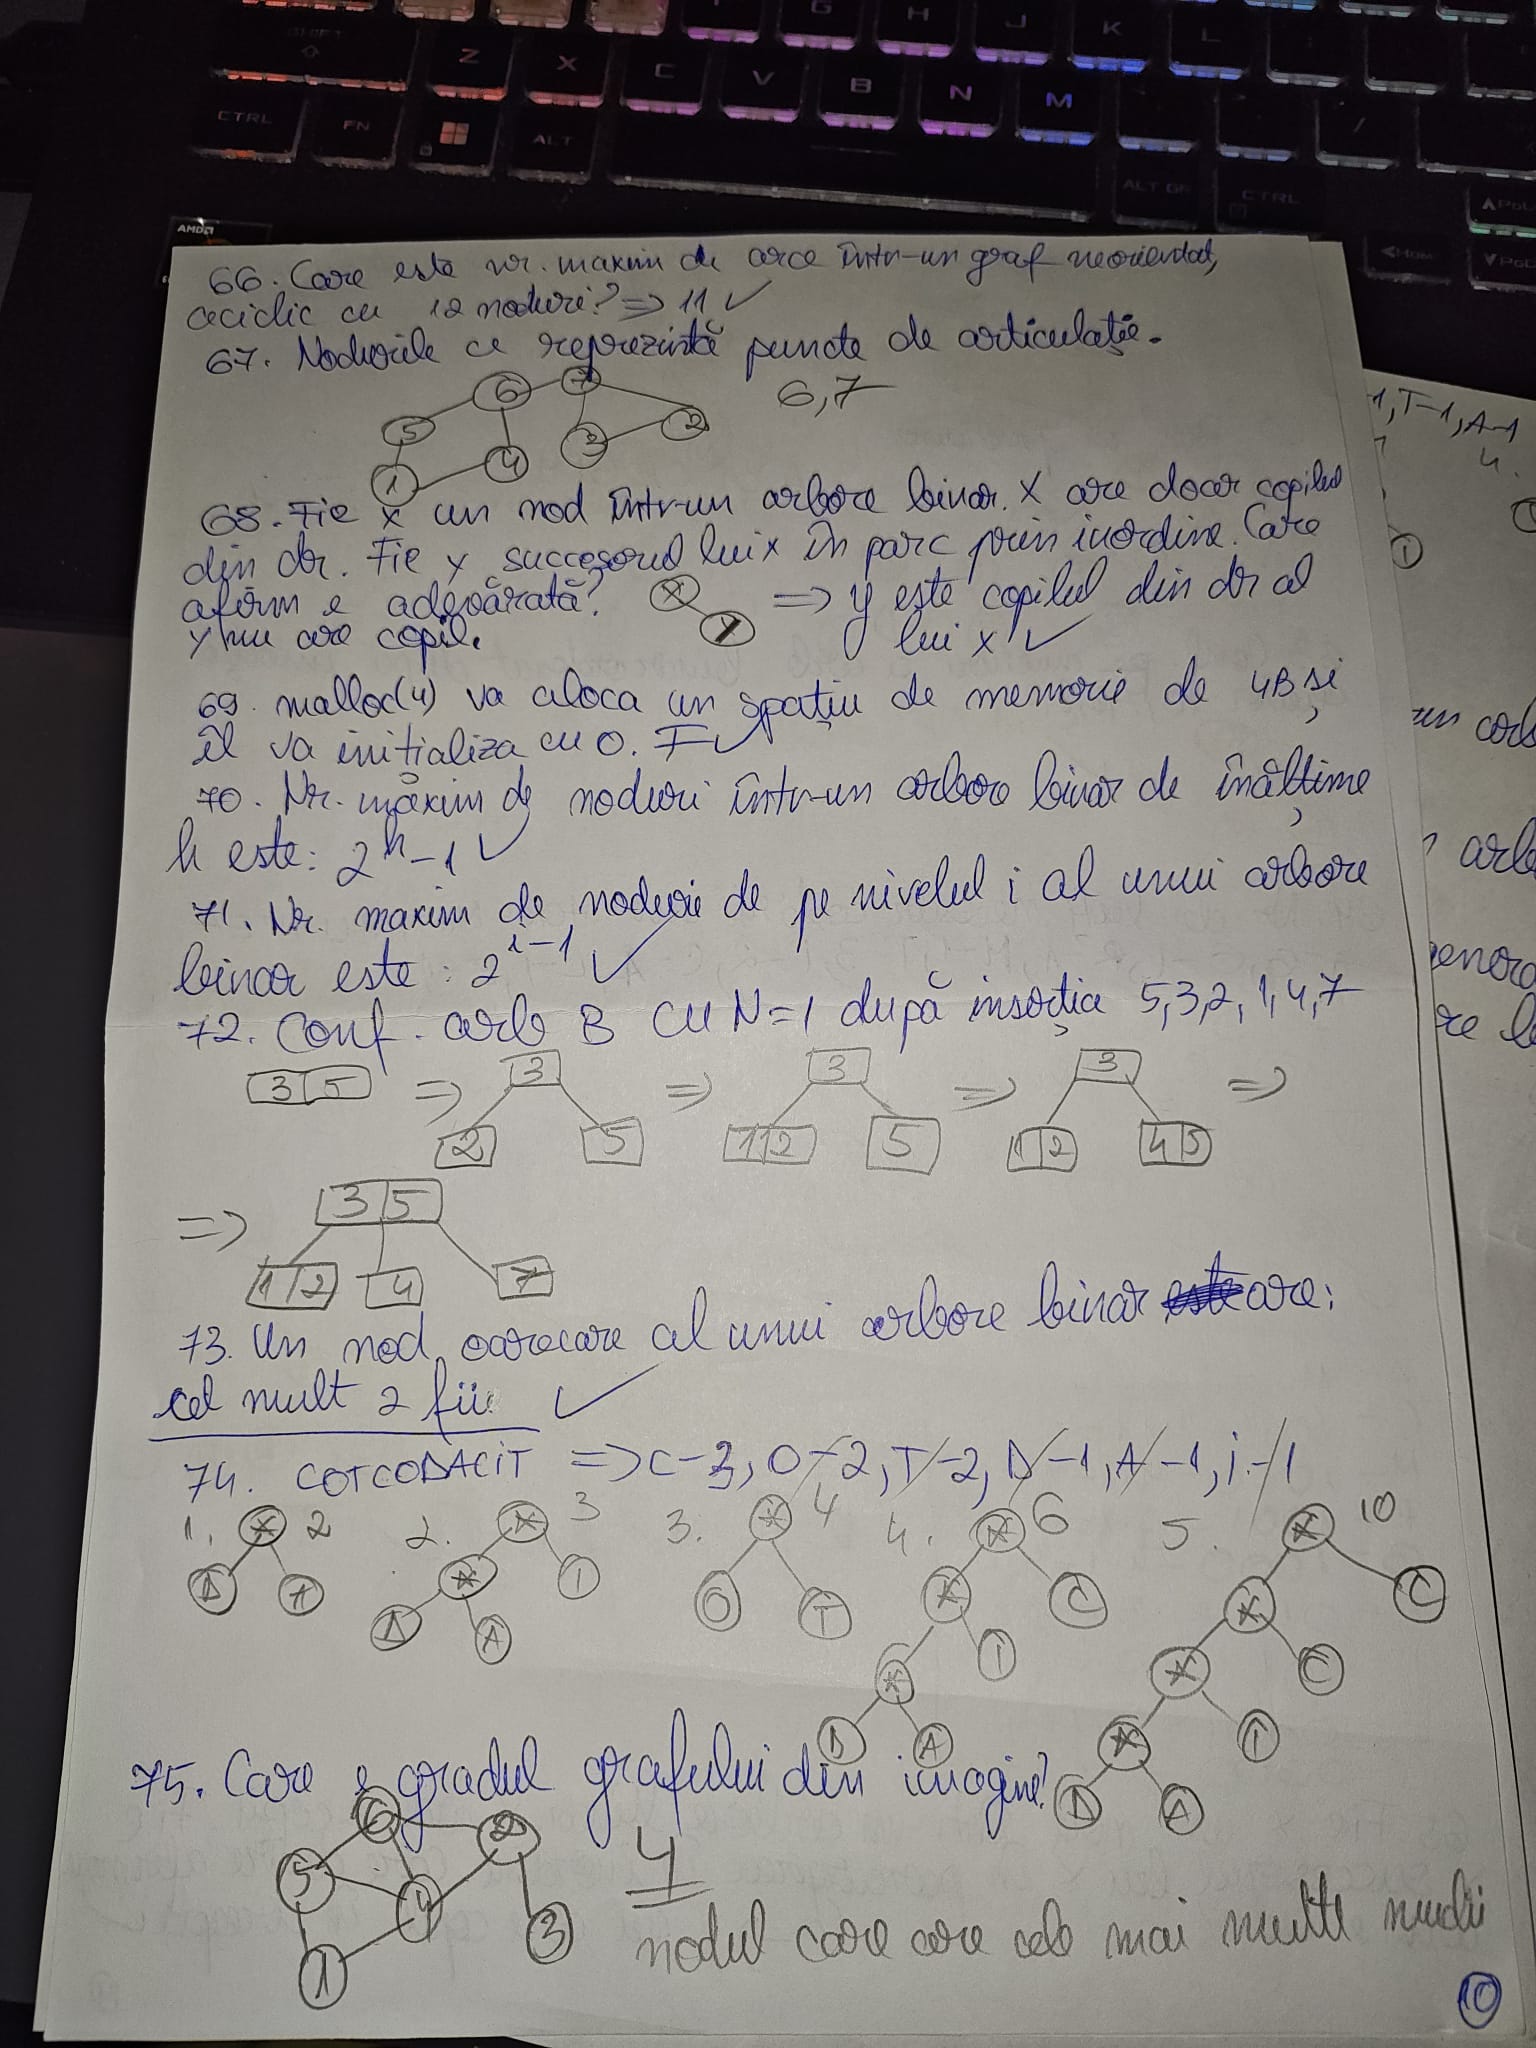 SHIFT
Z X C V B N M
G H J K L
CTRL FN ALT ALT GR CTRL
/
AMD
66. Care este nr. maxim de arce într-un graf neorientat,
aciclic cu 12 noduri? => 11 ✓
67. Nodurile ce reprezintă puncte de articulație.
6,7
6 7
5 3 2
1 4
68. Fie x un nod într-un arbore binar. X are doar copilul
din dr. Fie y succesorul lui x în parc prin inordine. Care
afirm e adevărată? X => y este copilul din dr al
y nu are copil. Y lui x ✓
69. malloc(4) va aloca un spațiu de memorie de 4B și
îl va inițializa cu 0. F ✓
70. Nr. maxim de noduri într-un arbore binar de înălțime
h este: 2^h-1 ✓
71. Nr. maxim de noduri de pe nivelul i al unui arbore
binar este: 2^i-1 ✓
72. Conf. arb B cu N=1 după inserția 5,3,2,1,4,7
3|5 => 3 => 3 => 3 =>
2 5 1|2 5 1|2 4|5
=> 3|5
1|2 4 7
73. Un nod oarecare al unui arbore binar este are:
cel mult 2 fii ✓
74. COTCODACIT => C-3, O-2, T-2, D-1, A-1, i-1
1. * 2 2. * 3 3. * 4 4. * 6 5. * 10
D A * I O T * C * C
D A * I * C
D A * I
D A
75. Care e gradul grafului din imagine?
6 2
5 4 3
1
4
nodul care are cele mai multe muchii
10
1, T-1, A-1
4.
i
arb